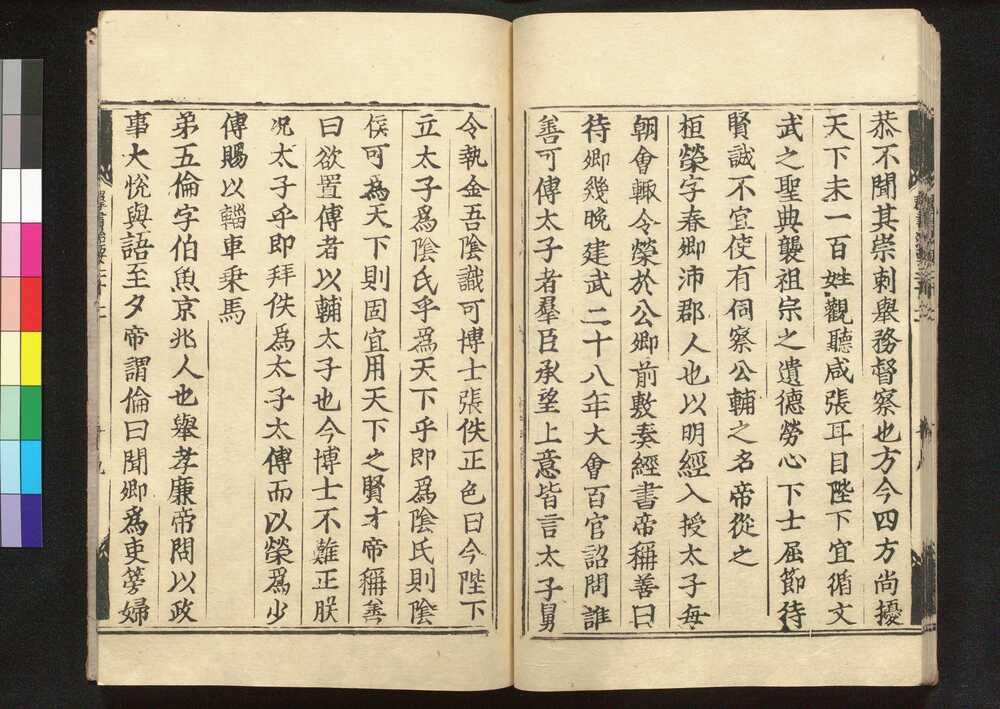 恭不聞其崇刺舉務督察也方今四方尚擾
天下未一百姓觀聽咸張耳目陛下宜循文
武之聖典襲祖宗之遺德勞心下士屈節待
賢誠不宜使有伺察公輔之名帝從之
桓榮字春卿沛郡人也以明經入授太子每
朝會輒令榮於公卿前敷奏經書帝稱善曰
待卿幾晚建武二十八年大會百官詔問誰
善可傅太子者羣臣承望上意皆言太子舅
令執金吾陰識可博士張佚正色曰今陛下
立太子爲陰氏乎爲天下乎即爲陰氏則陰
侯可爲天下則固宜用天下之賢才帝稱善
曰欲置傅者以輔太子也今博士不難正朕
况太子乎即拜佚爲太子太傅而以榮爲少
傅賜以輜車乗馬
弟五倫字伯魚京兆人也舉孝廉帝問以政
事大悅與語至夕帝謂倫曰聞卿爲吏篣婦